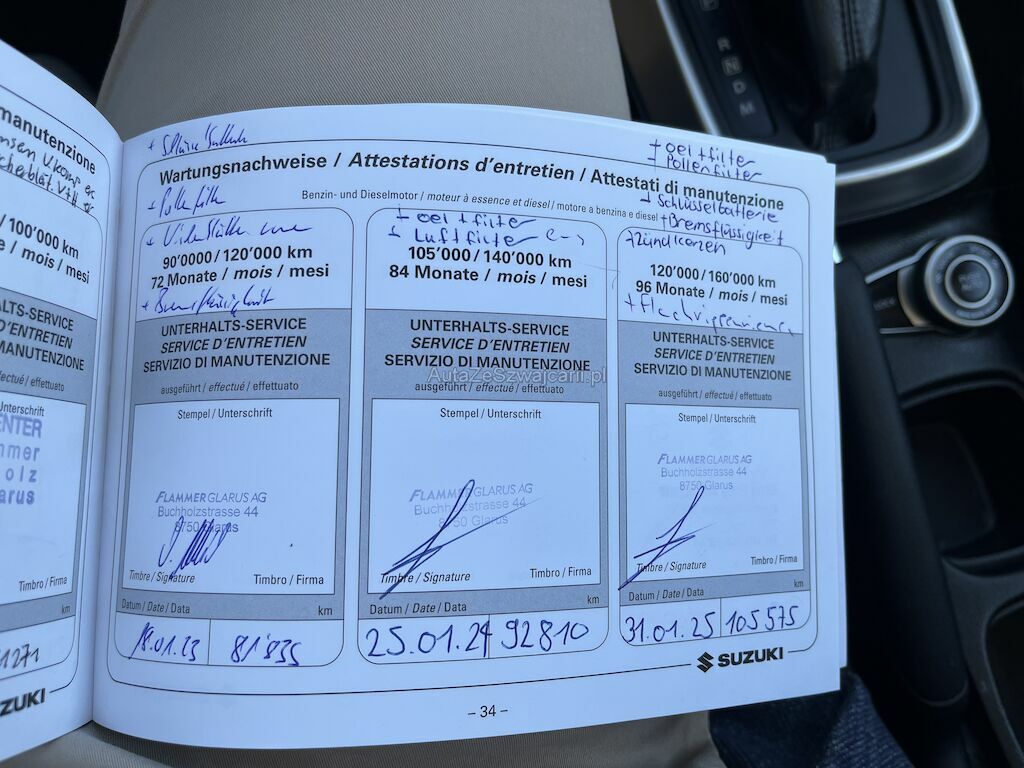 manutenzione
100'000 km
mois / mesi
ALTS-SERVICE
D'ENTRETIEN
MANUTENZIONE
effectué / effettuato
Unterschrift
ENTER
mmer
olz
arus
Timbro / Firma
km
1271
ZUKI
Wartungsnachweise / Attestations d'entretien / Attestati di manutenzione
Benzin- und Dieselmotor / moteur à essence et diesel / motore a benzina e diesel
90'0000/120'000 km
72 Monate / mois / mesi
UNTERHALTS-SERVICE
SERVICE D'ENTRETIEN
SERVIZIO DI MANUTENZIONE
ausgeführt / effectué / effettuato
Stempel / Unterschrift
FLAMMER GLARUS AG
Buchholzstrasse 44
8750 Glarus
Timbre / Signature
Timbro / Firma
Datum / Date / Data
km
18.01.23
81'835
+ oelfilter
+ Luftfilter
105'000/140'000 km
84 Monate / mois / mesi
UNTERHALTS-SERVICE
SERVICE D'ENTRETIEN
SERVIZIO DI MANUTENZIONE
ausgeführt / effectué / effettuato
Stempel / Unterschrift
FLAMMER GLARUS AG
Buchholzstrasse 44
8750 Glarus
Timbre / Signature
Timbro / Firma
Datum / Date / Data
km
25.01.24
92810
+ oelfilter
+ Pollenfilter
+ Schlüsselbatterie
+ Bremsflüssigkeit
+ Zündkerzen
120'000/160'000 km
96 Monate / mois / mesi
UNTERHALTS-SERVICE
SERVICE D'ENTRETIEN
SERVIZIO DI MANUTENZIONE
ausgeführt / effectué / effettuato
Stempel / Unterschrift
FLAMMER GLARUS AG
Buchholzstrasse 44
8750 Glarus
Timbre / Signature
Timbro / Firma
Datum / Date / Data
km
31.01.25
105575
SUZUKI
– 34 –
AutaZeSzwajcarii.pl
R
N
D
M